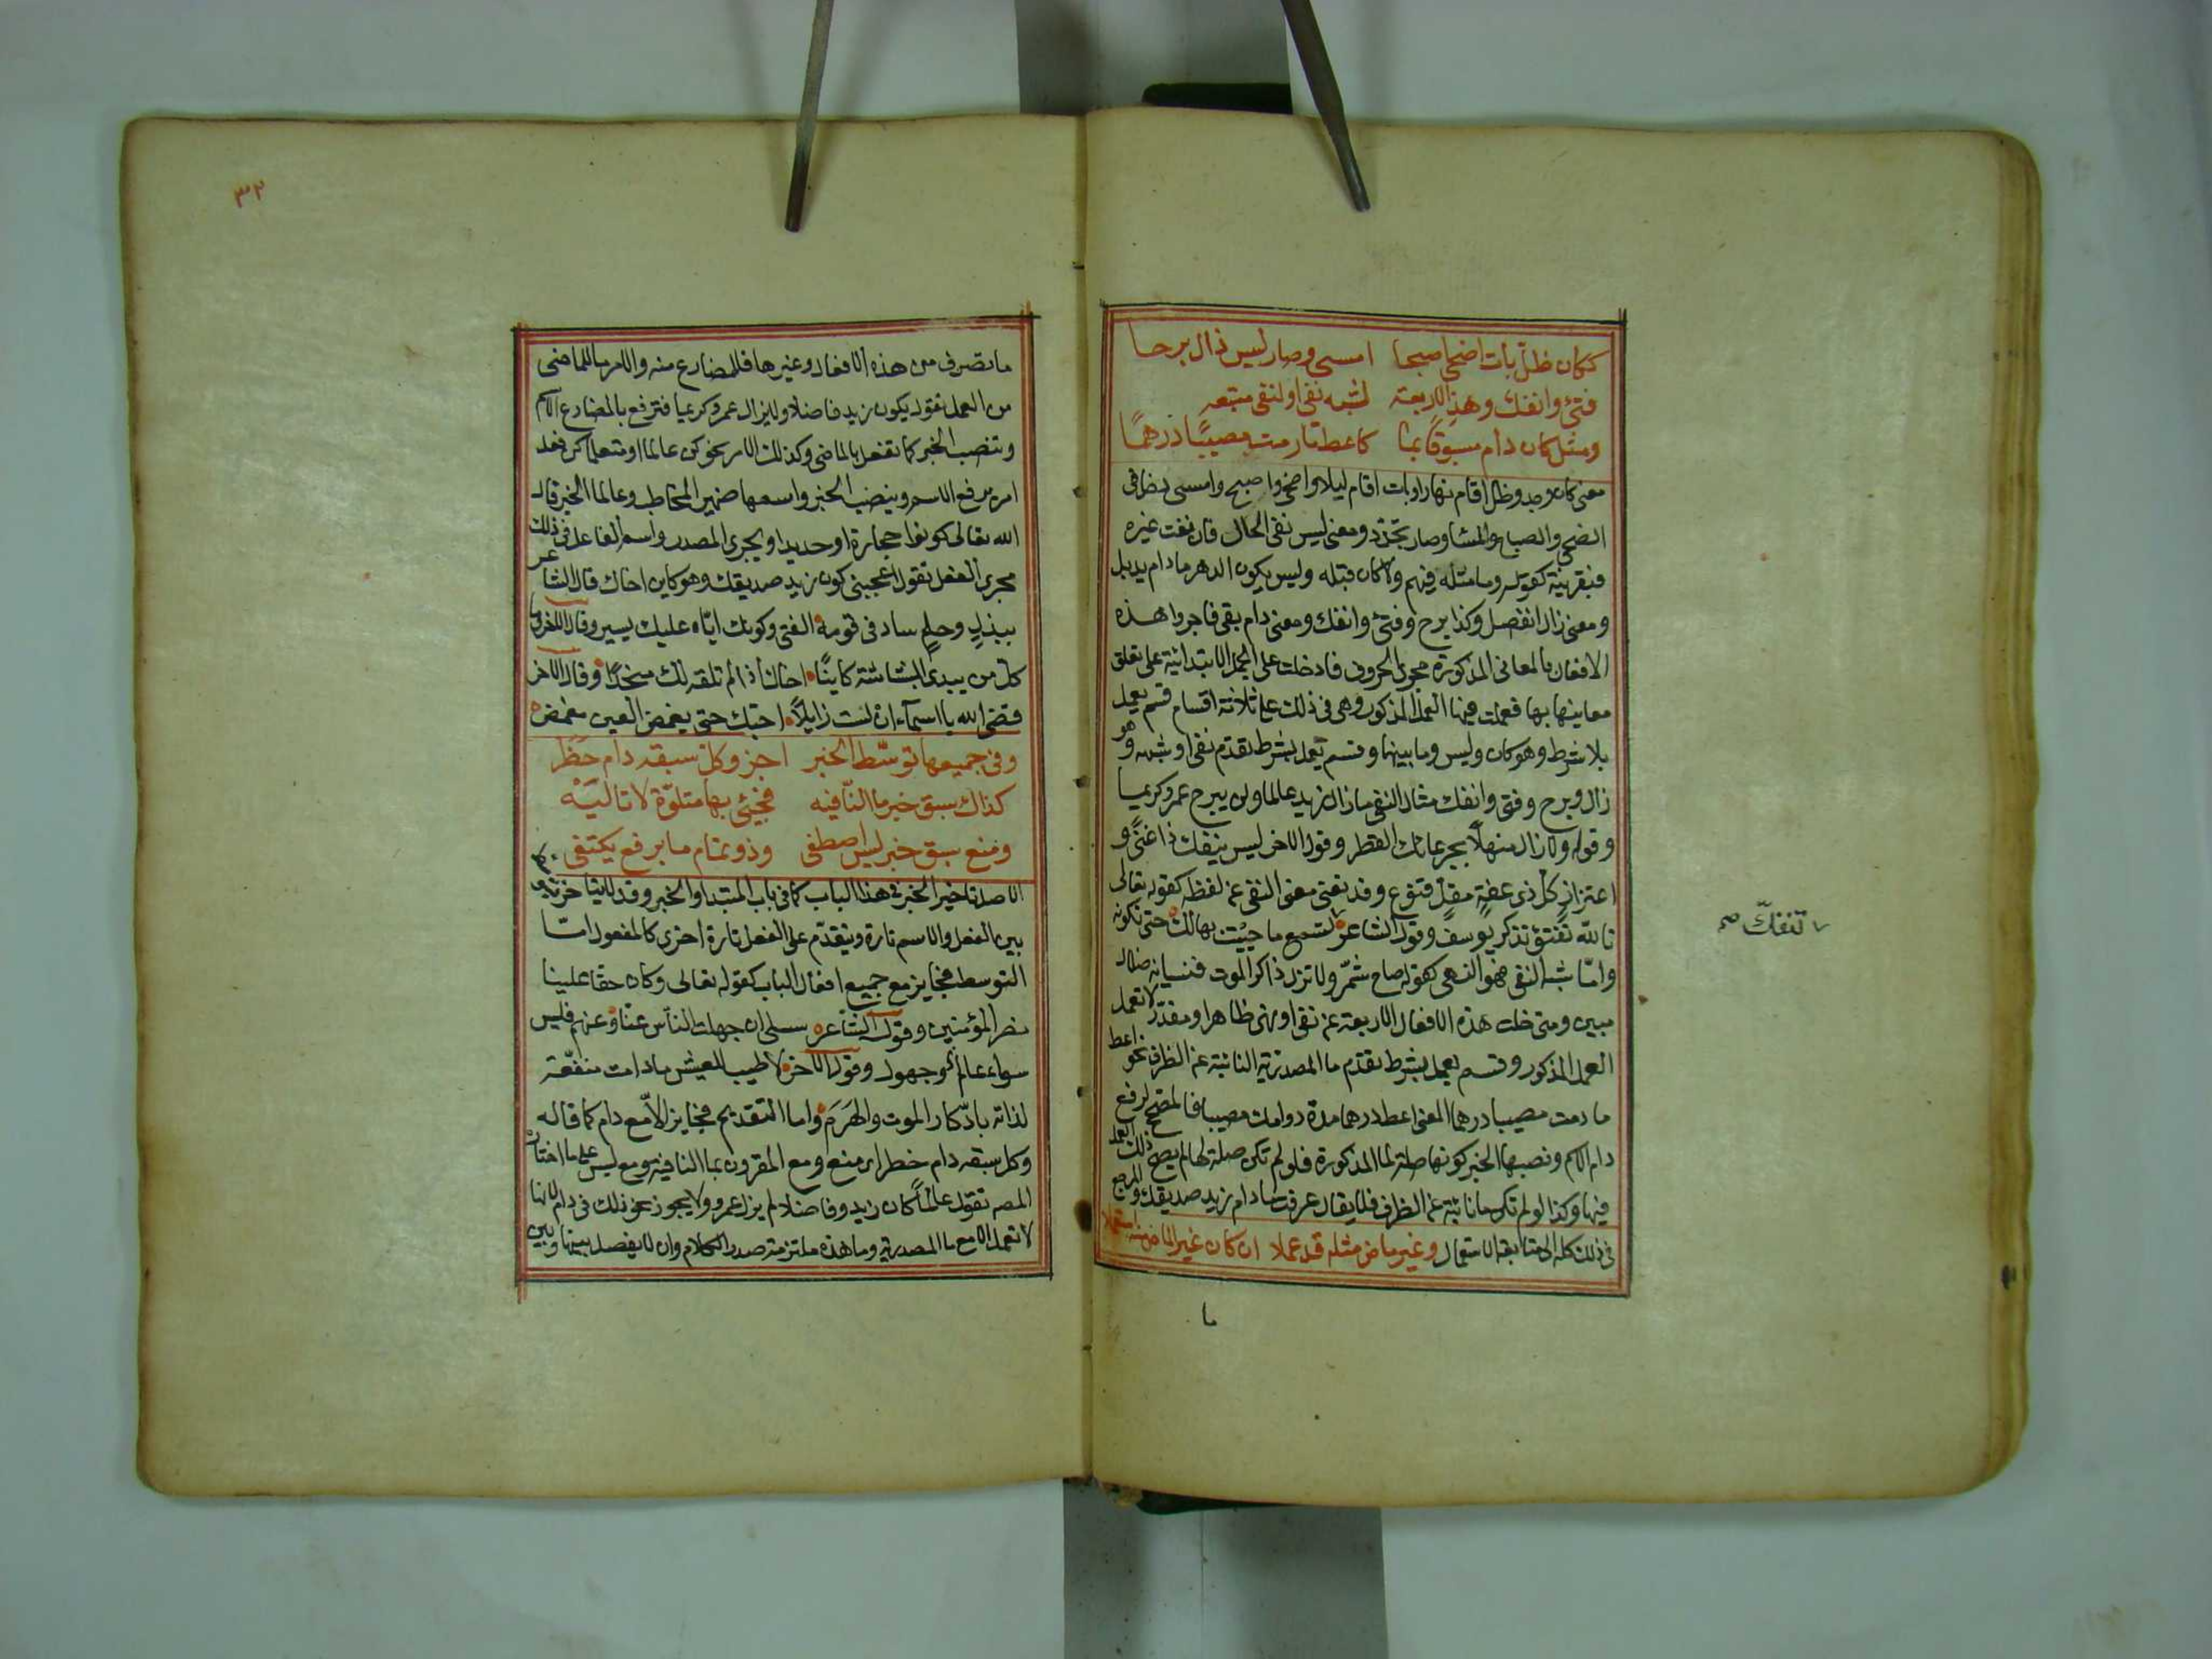 ككان ظلّ بات اضحى اصبحا امسى وصار ليس زال برحا
فتئ وانفك وهذي الاربعة لشبه نفى او لنفى متبعه
ومثل كان دام مسبوقا بما كاعط ما دمت مصيبًا درهمًا
معنى كان وجد وظل اقام نهارا وبات اقام ليلا واضحى واصبح وامسى دخل فى
الضحى والصباح والمسا وصار تجدّد ومعنى ليس نفى الحال فان نفت غيره
فبقرينة كقوله وما مثله فيهم ولا كان قبله وليس يكون الدهر مادام يذبل
ومعنى زال انفصل وكذا برح وفتئ وانفك ومعنى دام بقى فاجروا هذه
الافعال بالمعانى المذكورة مجرى الحروف فادخلت على الجمل الابتدائية على تعلق
معانيها بها فعملت فيها العمل المذكور وهى فى ذلك على ثلاثة اقسام قسم يعمل
بلا شرط وهو كان وليس وما بينها وقسم يعمل بشرط تقدم نفى او شبهه وهو
زال وبرح وفتئ وانفك مثال النفى مازال زيد عالما ولن يبرح عمرو كريما
وقوله ولا زال منهلاً بجرعائك القطر وقول الاخر ليس ينفك ذا غنًى و
اعتزاز كل ذى عفة مقل قنوع وقد يغنى معنى النفى عن لفظه كقوله تعالى
تالله تفتؤ تذكر يوسف وقول الشاعر تسمع ما حييت بهالك حتى تكونه
٧ تنفكّ صح
وامّا شبه النفى فهو النهى كقوله صاح شمّر ولا تزل ذاكر الموت فنسيانه ضلال
مبين ومتى خلت هذه الافعال الاربعة عن نفى او نهى ظاهر او مقدّر لا تعمل
العمل المذكور وقسم يعمل بشرط تقدم ما المصدرية النائبة عن الظرف نحو اعط
ما دمت مصيبا درهما المعنى اعط درهما مدة دوامك مصيبا فالمصحح لرفع
دام الاسم ونصبها الخبر كونها صلة لما المذكورة فلو لم تكن صلة لها لم يصح ذلك العمل
فيها وكذا لو لم تكن ما نائبة عن الظرف فلا يقال عرفت ما دام زيد صديقك والمرجع
فى ذلك كله الى متابعة الاستعمال وغير ماض مثله قد عملا ان كان غير الماض منه استعملا
ما
٣٢
ما تصرف من هذه الافعال وغيرها فللمضارع منه والامر ما للماضى
من العمل تقول يكون زيد فاضلا ولا يزال عمرو كريما فترفع بالمضارع الاسم
وتنصب الخبر كما تفعل بالماضى وكذلك الامر نحو كن عالما او متعلما كن فعل
امر يرفع الاسم وينصب الخبر واسمها ضمير المخاطب وعالما الخبر قال
الله تعالى كونوا حجارة او حديدا ويجرى المصدر واسم الفاعل فى ذلك
مجرى الفعل تقول اعجبنى كون زيد صديقك وهو كاين اخاك قال الشاعر
ببذل وحلم ساد فى قومه الفتى وكونك ايّاه عليك يسير وقال الاخر وما
كل من يبدى البشاشة كاينًا اخاك اذا لم تلفه لك منجدًا وقال الاخر
قضى الله يا اسمآء ان لست زايلًا احبك حتى يغمض العين مغمض
وفى جميعها توسّط الخبر اجز وكل سبقه دام حظر
كذاك سبق خبر ما النّافيه فجئ بها متلوّة لا تاليَه
ومنع سبق خبر ليس اصطفى وذو تمام ما برفع يكتفى
الاصل تاخير الخبر فى هذا الباب كما فى باب المبتدا والخبر وقد
بين الفعل والاسم تارة ويتقدّم على الفعل تارة اخرى كالمفعول امّا
التوسط فجايز مع جميع افعال الباب كقوله تعالى وكان حقا علينا
نصر المؤمنين وقول الشاعر سلى ان جهلت الناس عنّا وعنهم فليس
سواء عالم وجهول وقول الاخر لا طيب للعيش مادامت منغّصة
لذاته بادّكار الموت والهَرَم واما التقديم فجايز الّا مع دام كما قاله
وكل سبقه دام حظر اى منع ومع المقرون بما النافية ومع ليس على ما اختاره
المصـ تقول عالمًا كان زيد وفاضلا لم يزل عمرو ولا يجوز نحو ذلك فى دام لانها
لا تعمل الا مع ما المصدرية وما هذه ملتزمة صدر الكلام وان لا يفصل بينها وبين